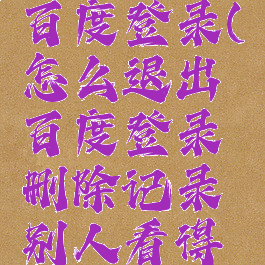 百度登录(
怎么退出
百度登录
删除记录
别人看得